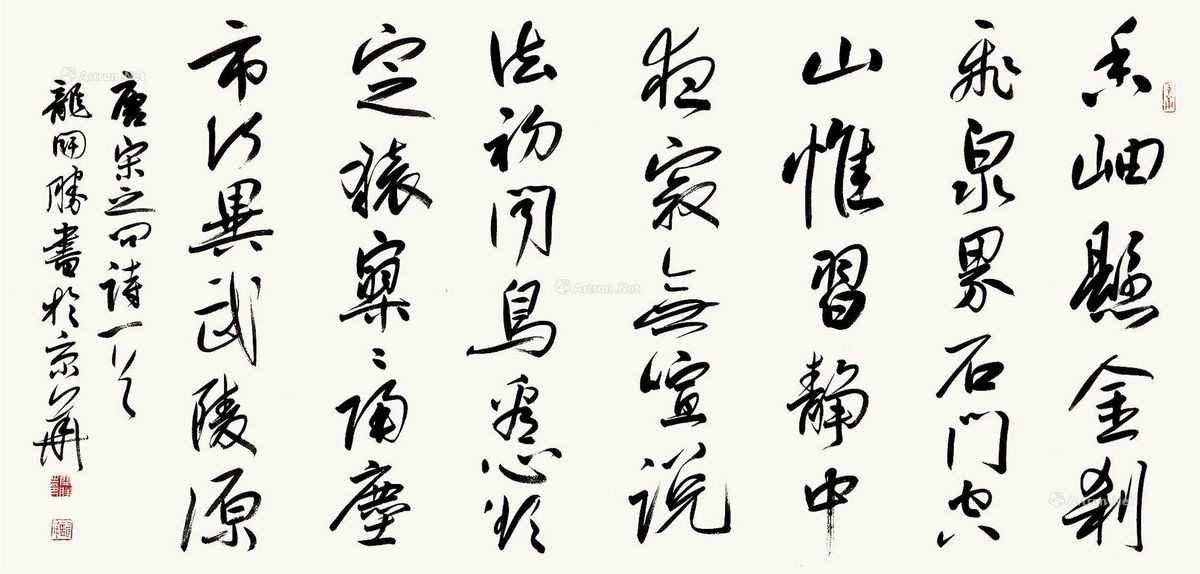 香岫懸金刹
飛泉界石門空
山惟習静中
夜寂無喧说
法初闻鳥看心欲
定猿寥〻隔塵
市何異武陵源
唐宋之问詩一首
龍開勝書於京華
Artron.Net
Artron.Net
Artron.Net